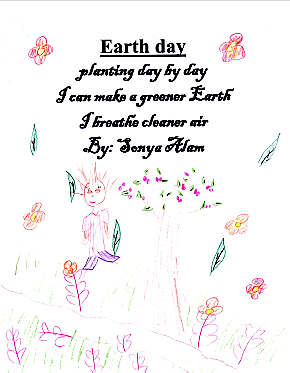 Earth day
planting day by day
I can make a greener Earth
I breathe cleaner air
By: Sonya Alam